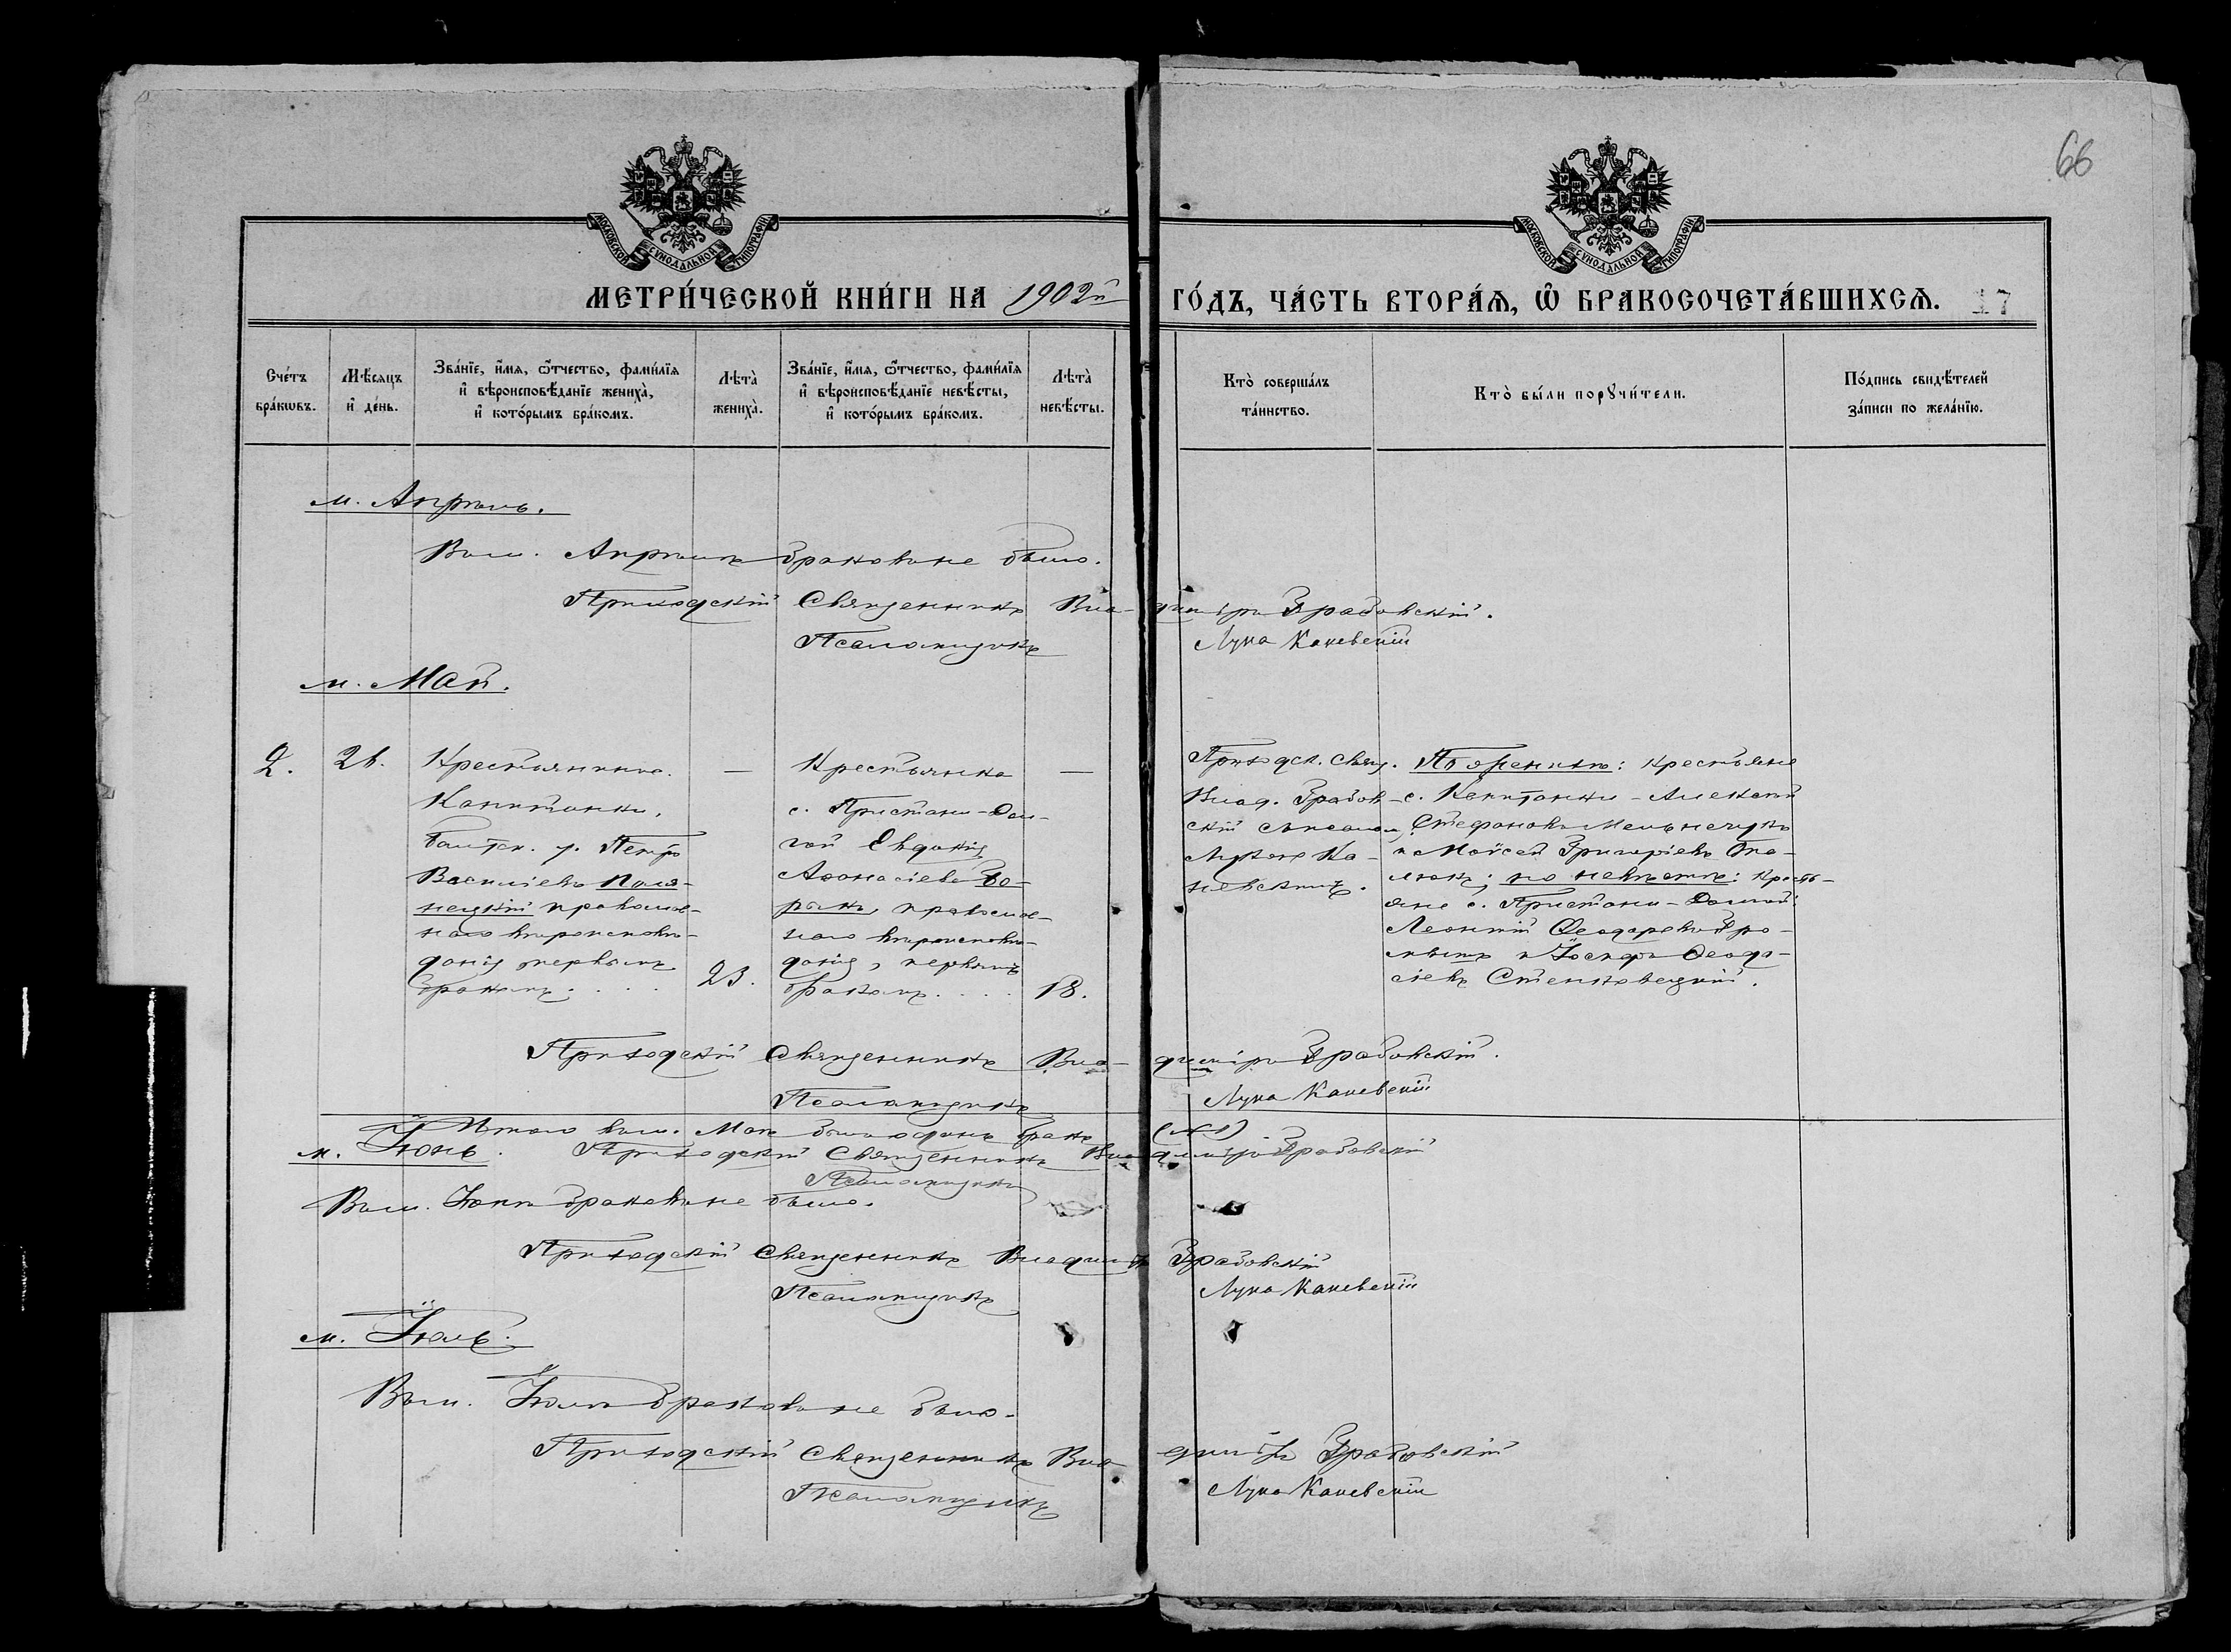 66
МОСКОВСКОЙ СѴНОДАЛЬНОЙ ТИПОГРАФІИ
МОСКОВСКОЙ СѴНОДАЛЬНОЙ ТИПОГРАФІИ
МЕТРИ́ЧЕСКОЙ КНИ́ГИ НА 1902й ГО́ДЪ, ЧА́СТЬ ВТОРА́Я, Ѡ БРАКОСОЧЕТА́ВШИХСЯ. 17
Сче́тъ бра́кѡвъ.
Мѣ́сяцъ и҆ де́нь.
Зва́нїе, и҆́мя, ѻ҆́тчество, фами́лїя и҆ вѣроисповѣ́данїе жениха̀, и҆ кото́рымъ бра́комъ.
Лѣта̀ жениха̀.
Зва́нїе, и҆́мя, ѻ҆́тчество, фами́лїя и҆ вѣроисповѣ́данїе невѣ́сты, и҆ кото́рымъ бра́комъ.
Лѣта̀ невѣ́сты.
Кто̀ соверша́лъ та́инство.
Кто̀ бы́ли порꙋчи́тели.
По́дпись свидѣ́телей за́писи по жела́нїю.
м. Апрѣль.
Въ м. Апрѣлѣ браковъ не было.
Приходскій Священникъ Владиміръ Грабовскій.
Псаломщикъ Лука Каневскій
м. Май.
2.
26.
Крестьянинъ
Капитанки,
Балтск. у. Петръ
Василіевъ
православ-
наго вѣроисповѣ-
данія, первымъ
бракомъ. . . .
23.
Крестьянка
с. Пристани-Дол-
гой Евдокія
Аѳанасіева
православ-
наго вѣроисповѣ-
данія, первымъ
бракомъ. . . .
18.
Приходск. Свящ.
Влад. Грабов-
скій съ псалом.
Лукою Ка-
невскимъ.
По женихѣ: крестьяне
с. Капитанки - Алексѣй
Стефановъ Мельничукъ
и Мойсей Григоріевъ
по невѣстѣ: кресть-
яне с. Пристани-Долгой:
Леонтій Ѳеодоровъ
и Іосифъ Ѳеодо-
сіевъ
Приходскій Священникъ Владиміръ Грабовскій.
Псаломщикъ Лука Каневскій
Итого въ м. Маѣ былъ одинъ бракъ (№ 1)
м. Іюнь. Приходскій Священникъ Владиміръ Грабовскій
Псаломщикъ
Въ м. Іюнѣ браковъ не было.
Приходскій Священникъ Владиміръ Грабовскій
Псаломщикъ Лука Каневскій
м. Іюль.
Въ м. Іюлѣ браковъ не было.
Приходскій Священникъ Владиміръ Грабовскій
Псаломщикъ Лука Каневскій